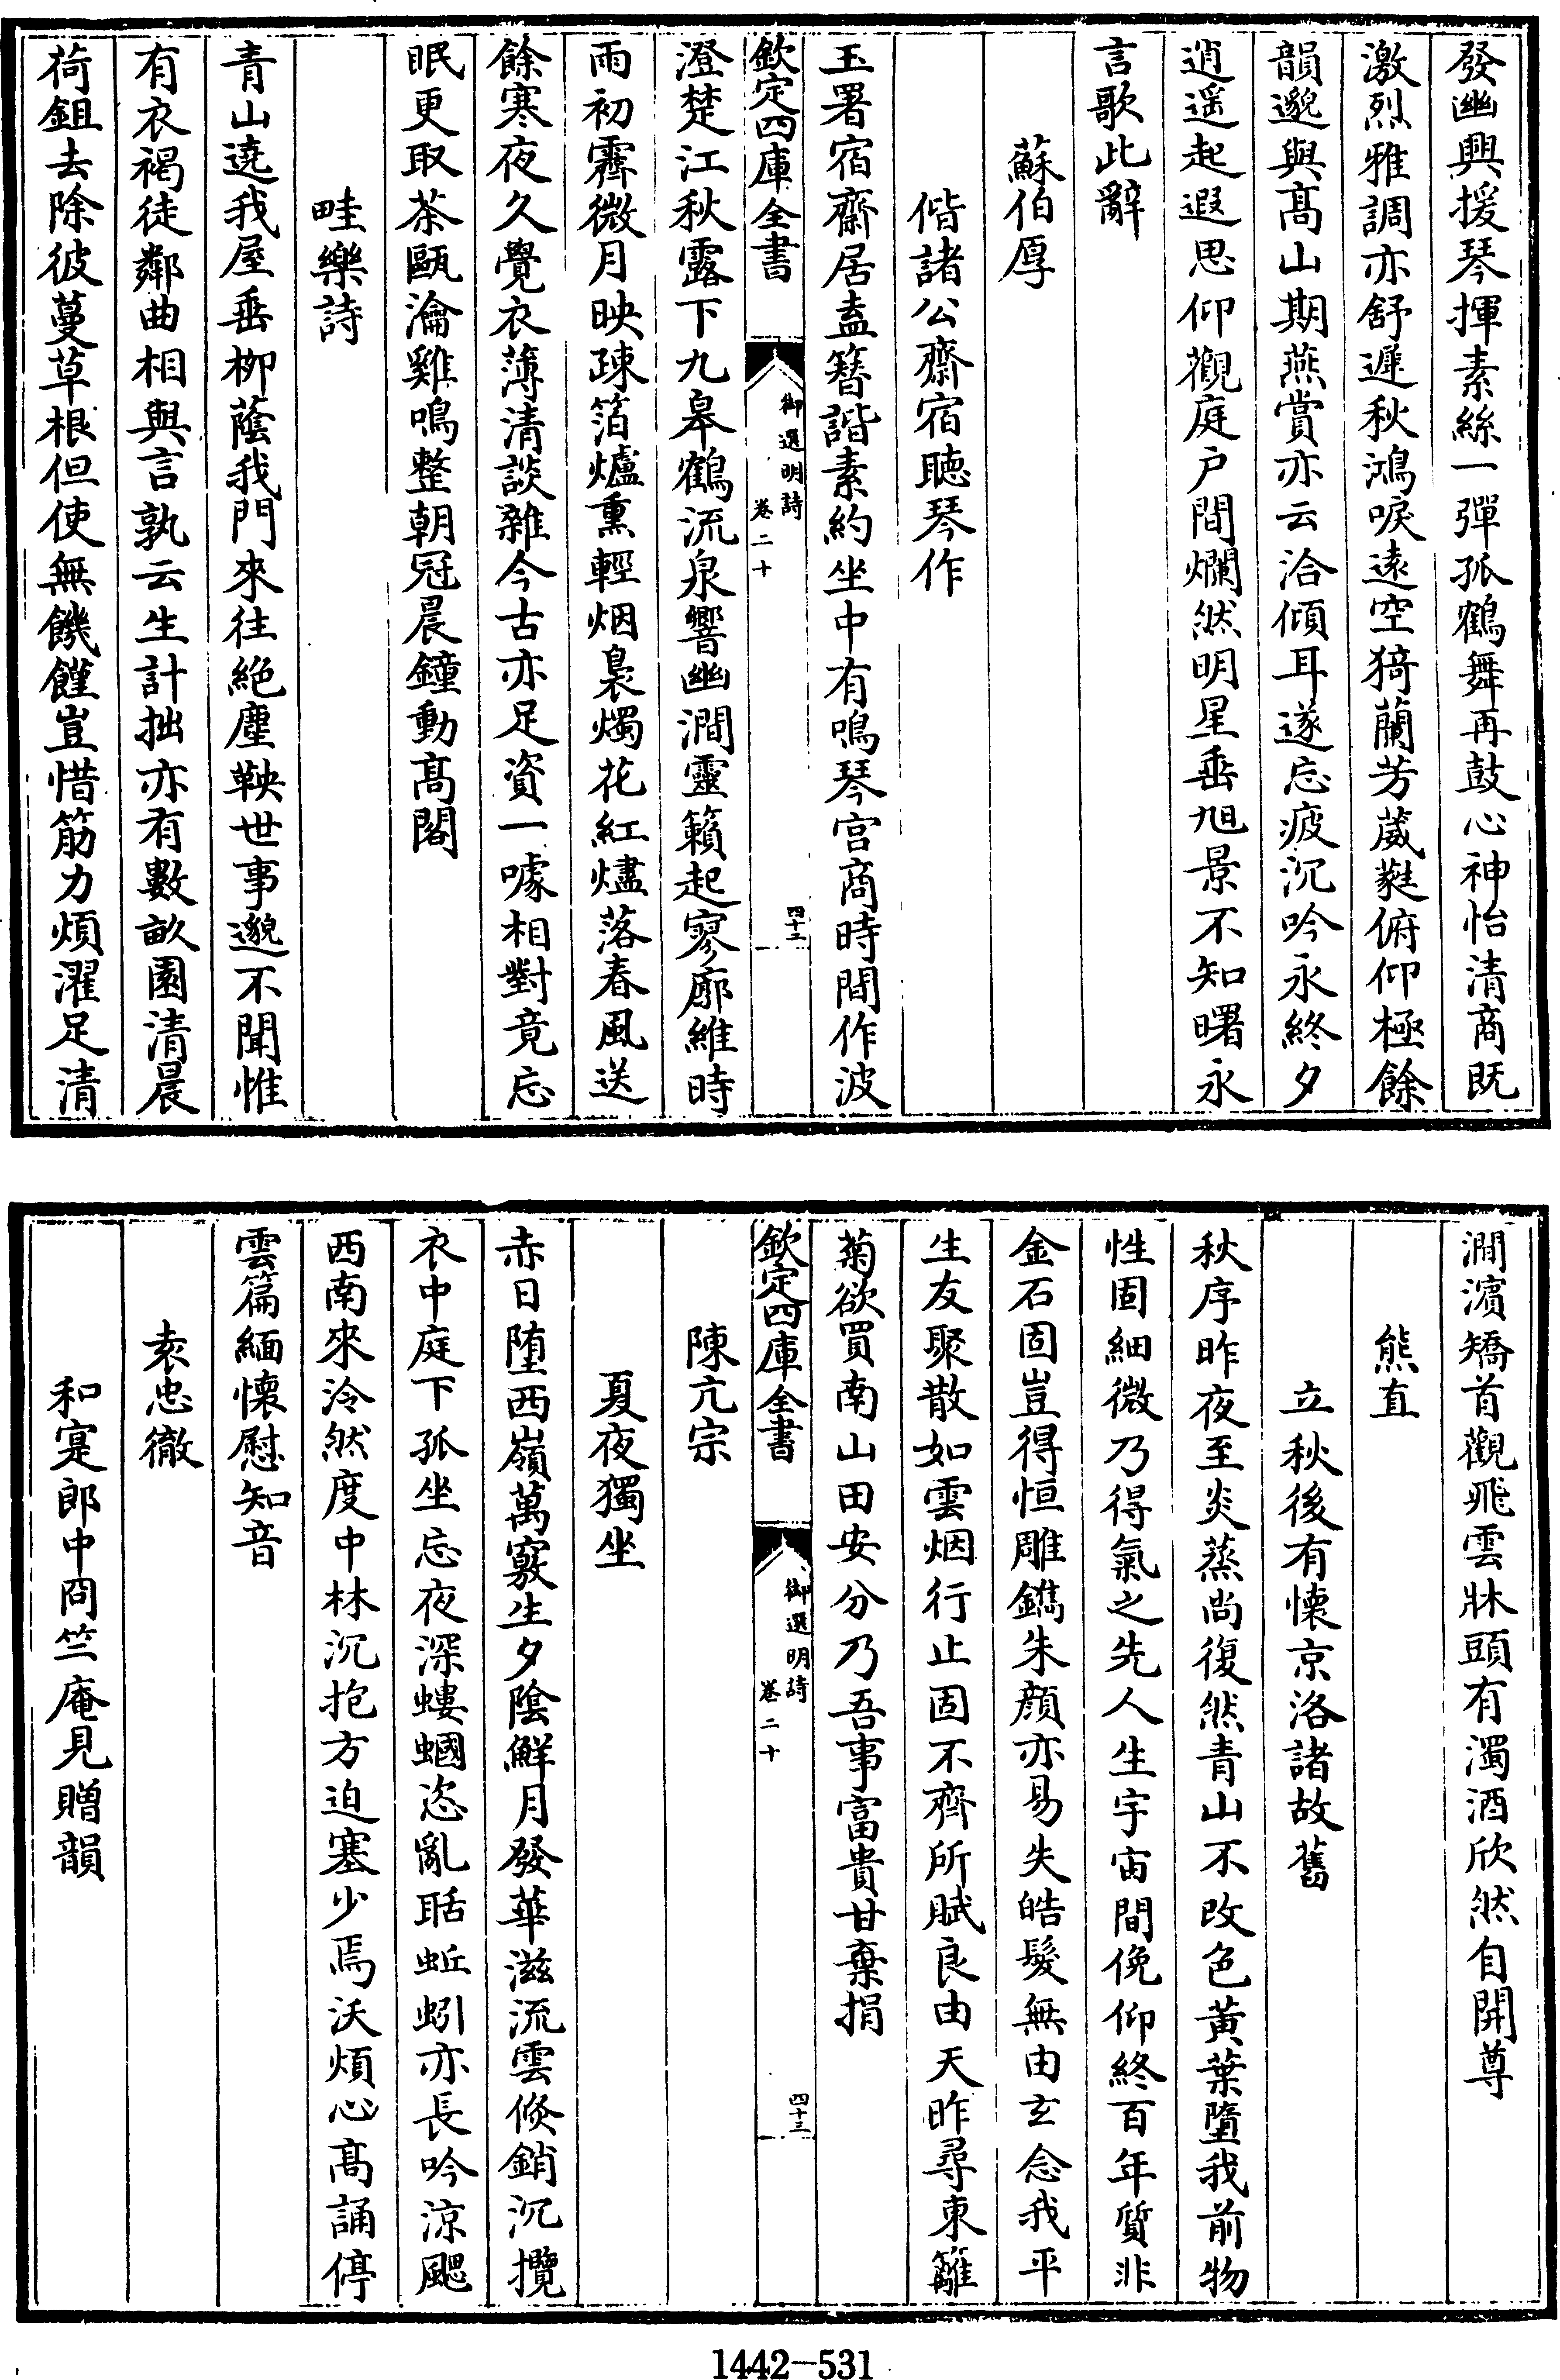 發幽興援琴揮素絲一彈孤鶴舞再鼓心神怡清商既
激烈雅調亦舒遲秋鴻唳遠空猗蘭芳葳蕤俯仰極餘
韻邈與髙山期燕賞亦云洽傾耳遂忘疲沉吟永終夕
逍遥起遐思仰觀庭户間爛然明星垂旭景不知曙永
言歌此辭
蘇伯厚
偕諸公齋宿聽琴作
玉署宿齋居盍簪諧素約坐中有鳴琴宫商時間作波
欽定四庫全書
御選明詩
卷二十
四十二
澄楚江秋露下九皋鶴流泉響幽澗靈籟起寥廓維時
雨初霽微月映疎箔爐熏輕烟裊燭花紅燼落春風送
餘寒夜久覺衣薄清談雜今古亦足資一噱相對竟忘
眠更取茶甌瀹雞鳴整朝冠晨鐘動髙閣
畦樂詩
青山遶我屋垂栁蔭我門來往絶塵鞅世事邈不聞惟
有衣褐徒鄰曲相與言孰云生計拙亦有數畝園清晨
荷鉏去除彼蔓草根但使無饑饉豈惜筋力煩濯足清
澗濵矯首觀飛雲牀頭有濁酒欣然自開尊
熊直
立秋後有懐京洛諸故舊
秋序昨夜至炎蒸尚復然青山不改色黄葉墮我前物
性固細微乃得氣之先人生宇宙間俛仰終百年質非
金石固豈得恒雕鐫朱顔亦易失皓髮無由玄念我平
生友聚散如雲烟行止固不齊所賦良由天昨尋東籬
菊欲買南山田安分乃吾事富貴甘棄捐
欽定四庫全書
御選明詩
卷二十
四十三
陳亢宗
夏夜獨坐
赤日墮西嶺萬竅生夕陰鮮月發華滋流雲倐銷沉攬
衣中庭下孤坐忘夜深螻蟈恣亂聒蚯蚓亦長吟涼颸
西南來泠然度中林沉抱方迫塞少焉沃煩心髙誦停
雲篇緬懐慰知音
袁忠徹
和寔郎中問竺庵見贈韻
1442-531